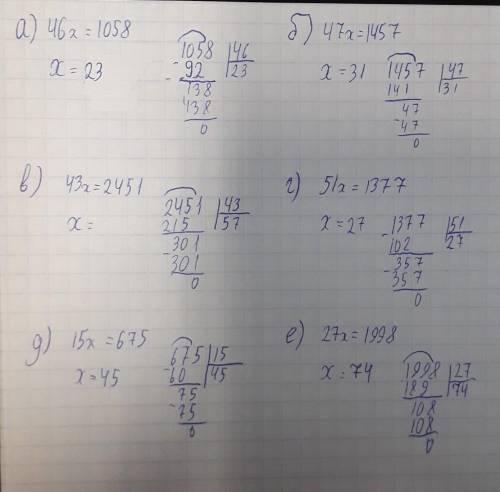 а) 46x = 1058
x = 23
1058 | 46
- 92 | 23
138
438
0
б) 47x = 1457
x = 31
1457 | 47
141 | 31
47
- 47
0
в) 43x = 2451
x =
2451 | 43
215 | 57
301
- 301
0
г) 51x = 1377
x = 27
- 1377 | 51
102 | 27
- 357
357
0
д) 15x = 675
x = 45
- 675 | 15
60 | 45
- 75
75
0
е) 27x = 1998
x = 74
1998 | 27
189 | 74
108
108
0